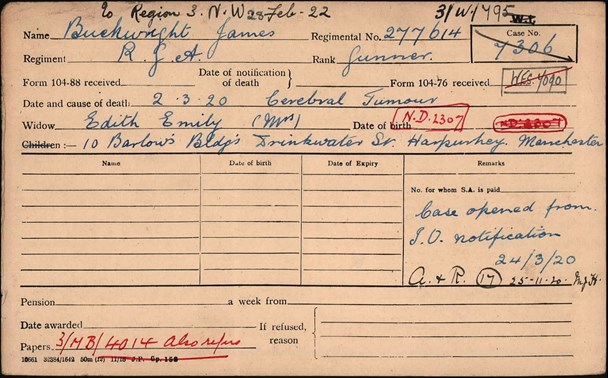 To Region 3. N.W 28 Feb-22 3/W/1795 W.I.
Name Buckwright James Regimental No. 277614 Case No.
Regiment R.G.A. Rank Gunner. 7306
Form 104-88 received Date of notification of death Form 104-76 received
Date and cause of death: 2.3.20 Cerebral Tumour
Widow Edith Emily (Mrs) Date of birth N.D.2307 N.D.2307
Children :— 10 Barlow's Bldgs Drinkwater St. Harpurhey. Manchester
Name Date of birth Date of Expiry Remarks
No. for whom S.A. is paid
Case opened from
I.O. notification
24/3/20
A. & R. 17 25-11-20
Pension a week from
Date awarded If refused, reason
Papers 3/MB/4014 Also refers
10661 50m 11/19 J.P. Gp.156